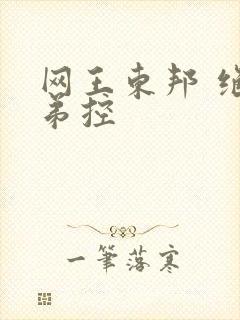 网王东邦 绝
弟控
一筆落寒